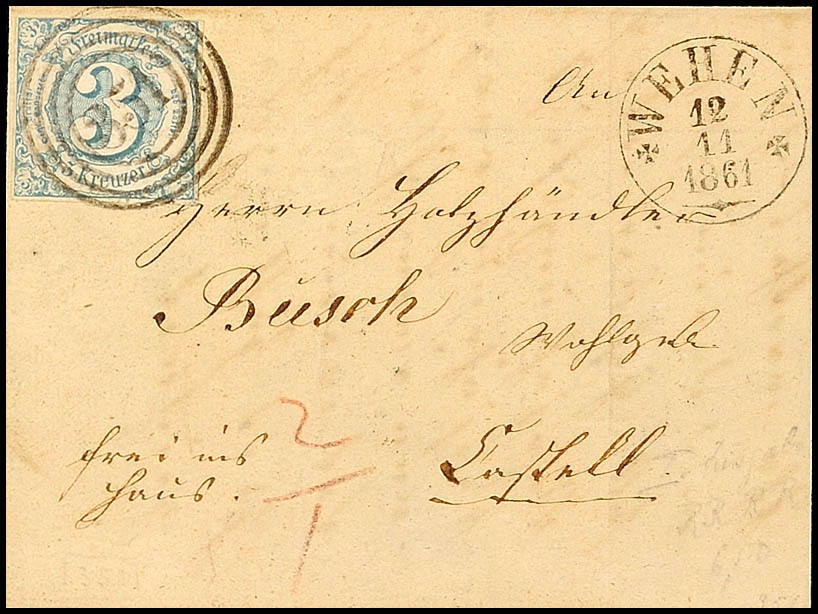 Freimarke
3
3 Kreuzer
An
WEHEN
12
11
1861
Herrn Holzhändler
Busch
Wohlgeb.
frei ins
Haus.
2
1
Castell.